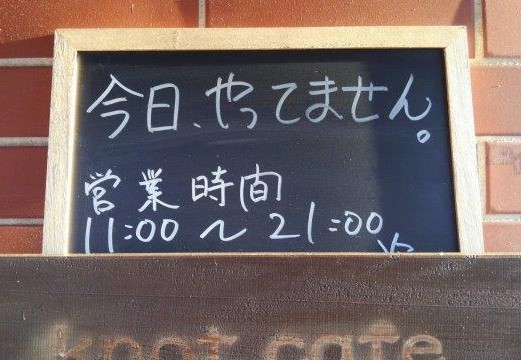 今日、やってません。
営業時間
11:00 〜 21:00
knot cafe